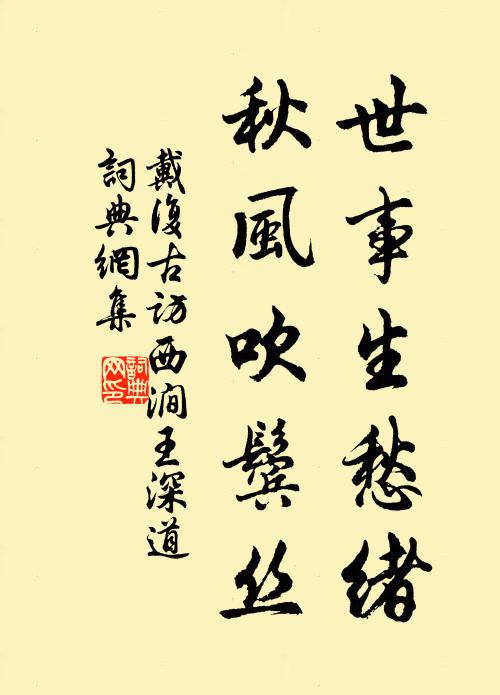 世事生愁緒
秋風吹鬢丝
戴復古访西澗王深道
詞典網集
詞典网印